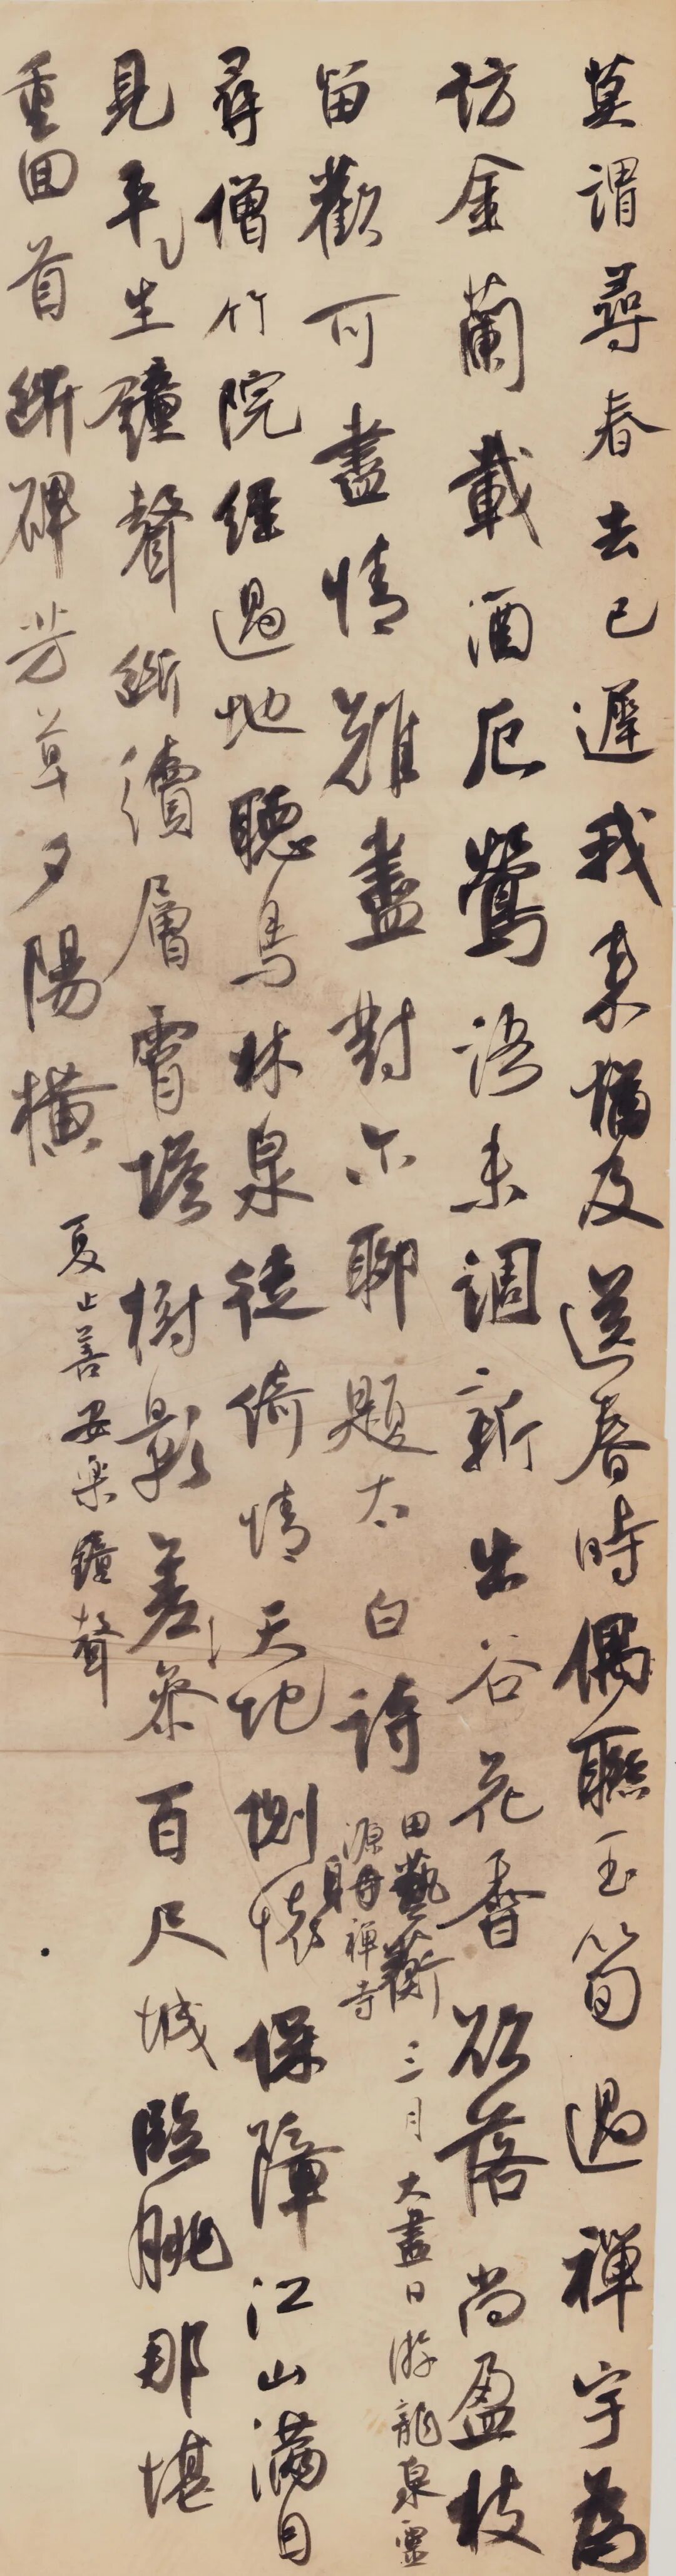 莫謂尋春去已遲我来猶及送春時偶聯玉筍過禪宇為
訪金蘭載酒卮鶯語未調新出谷花香欲落尚盈枝
留歡可盡情難盡對尓聊題太白詩
田藝蘅 三月大盡日游龍泉靈
源 禪寺
尋僧竹院經過地聽鳥林泉徒倚情天地側 保障江山滿目
見平生鐘聲斷續層霄 樹影差参百尺城臨眺那堪
重回首斷碑芳草夕陽橫
夏止善安樂鐘聲